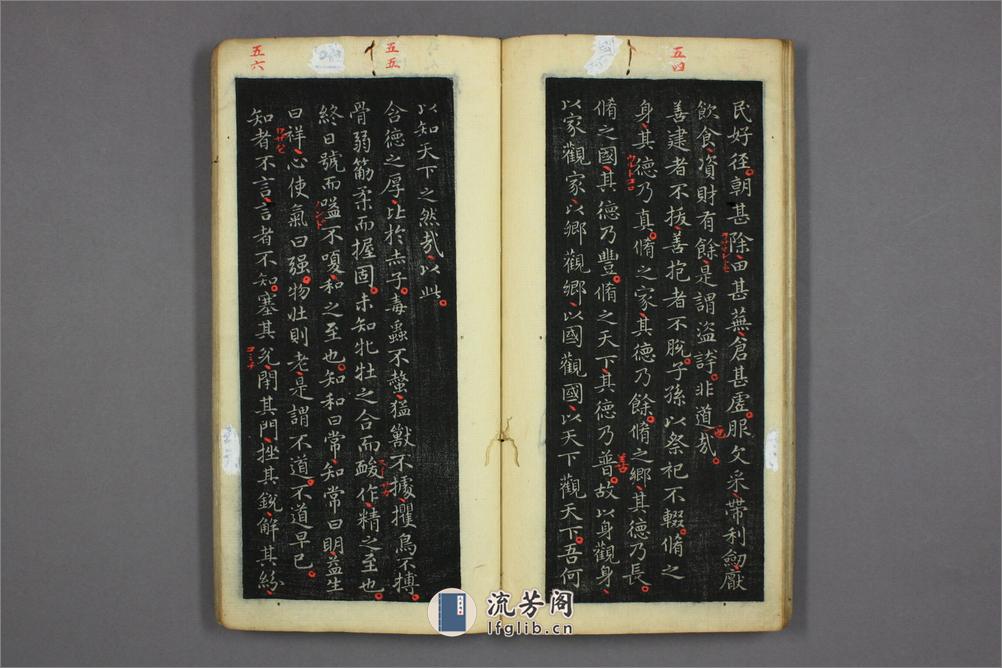 五四
民好徑朝甚除田甚蕪倉甚虛服文采帶利劒厭
飲食資財有餘是謂盜誇非道哉
也
善建者不拔善抱者不脫子孫以祭祀不輟脩之
身其德乃真脩之家其德乃餘脩之鄉其德乃長
脩之國其德乃豐脩之天下其德乃普故以身觀身
以家觀家以鄉觀鄉以國觀國以天下觀天下吾何
五五
以知天下之然哉以此
含德之厚比於赤子毒蟲不螫猛獸不據攫鳥不搏
骨弱筋柔而握固未知牝牡之合而酸作精之至也
終日號而嗌不嗄和之至也知和曰常知常曰明益生
曰祥心使氣曰强物壯則老是謂不道不道早已
五六
知者不言言者不知塞其兌閉其門挫其銳解其紛
コミチ
流芳阁
lfglib.cn